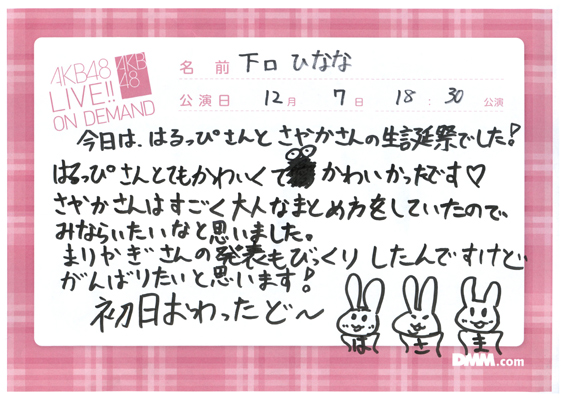 AKB48
LIVE!!
ON DEMAND
AKB
48
名前 下口ひなな
公演日 12月 7日 18:30公演
今日は、はるっぴさんとさやかさんの生誕祭でした!
はるっぴさんとてもかわいくて かわいかったです♡
さやかさんはすごく大人なまとめ方をしていたので、
みならいたいなと思いました。
まりかぎさんの発表もびっくりしたんですけど
がんばりたいと思います!
初日おわったど〜
は さ ま
DMM.com